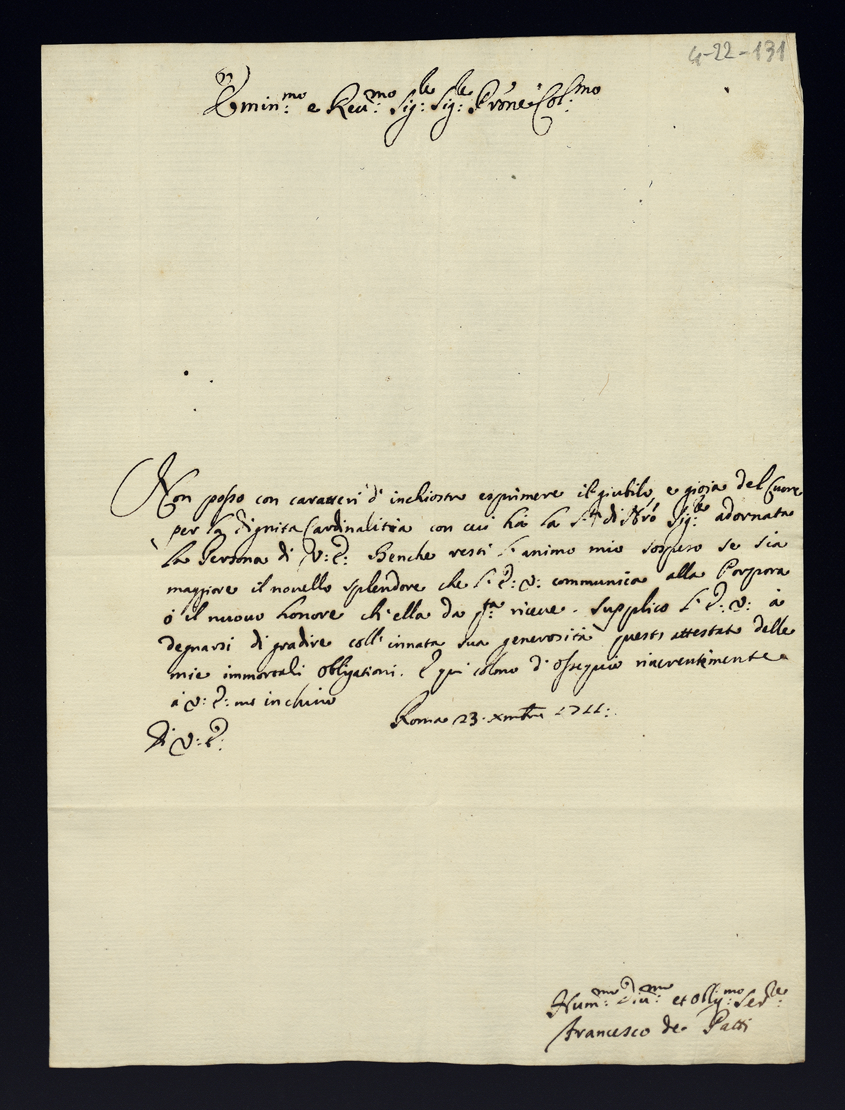 4-22-131
Emin:mo e Reu:mo Sig:le Sig:le Prone Col:mo
Non posso con caratteri d'inchiostro esprimere il giubilo, e gioia del Cuore
per la dignita Cardinalitia con cui hà la S:tà di Nrô Sig:le adornata
la Persona di V: E: Benche resti l'animo mio sospeso se sia
maggiore il novello splendore che l'E: V: communica alla Porpora
ó il nuovo honore ch'ella da sta riceve. Supplico l'E: V: à
degnarsi di gradire coll'innata sua generosità questo attestato delle
mie immortali obligationi. E qui colmo d'ossequio riuerentemente
à V: E: me inchino Roma 23. xmbre 1711:
Di V: E:
Hum:mo Diu:mo et Obli:mo Ser:le
Francesco de Patti